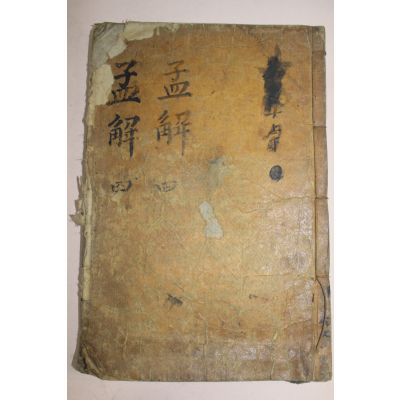 孟解 四
孟解 四